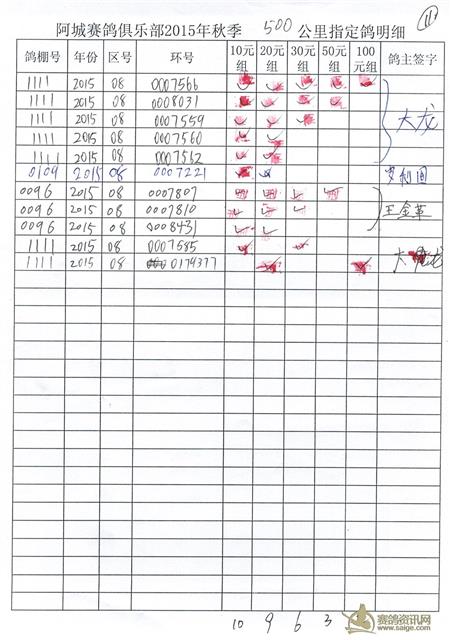 11
阿城赛鸽俱乐部2015年秋季 500 公里指定鸽明细
鸽棚号 年份 区号 环号 10元组 20元组 30元组 50元组 100元组 鸽主签字
1111 2015 08 0007566
1111 2015 08 0008031
1111 2015 08 0007559 大龙
1111 2015 08 0007560
1111 2015 08 0007562
0109 2015 08 0007221
0096 2015 08 0007807
0096 2015 08 0007810 王金革
0096 2015 08 0008431
1111 2015 08 0007685
1111 2015 08 0179377 大龙
10 9 6 3
赛鸽资讯网
www.saige.com